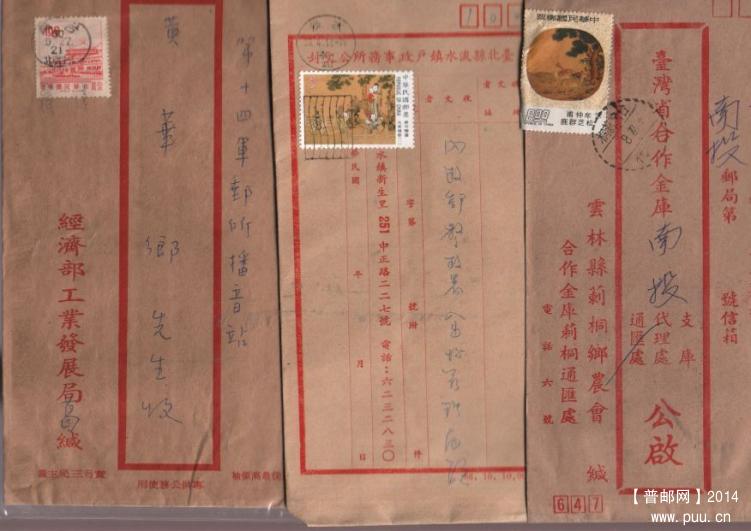 經濟部工業發展局 緘
黃華鄉先生收
第十四軍郵所播音站
實行三民主義
專供公務使用
臺北縣淡水鎮戶政事務所公文封
中華民國郵票
字第
號附
件
中正路二二七號 電話：六二三二八三〇
水鎮新生里 251
民國 年 月 日
內政部警政署入出境管理局
中華民國郵票
8.00
臺灣省合作金庫
南投
支庫
代理處
通匯處
公啟
雲林縣莿桐鄉農會
合作金庫莿桐通匯處
緘
電話六號
南投郵局第 號信箱
647
【普邮网】2014
www.puu.cn